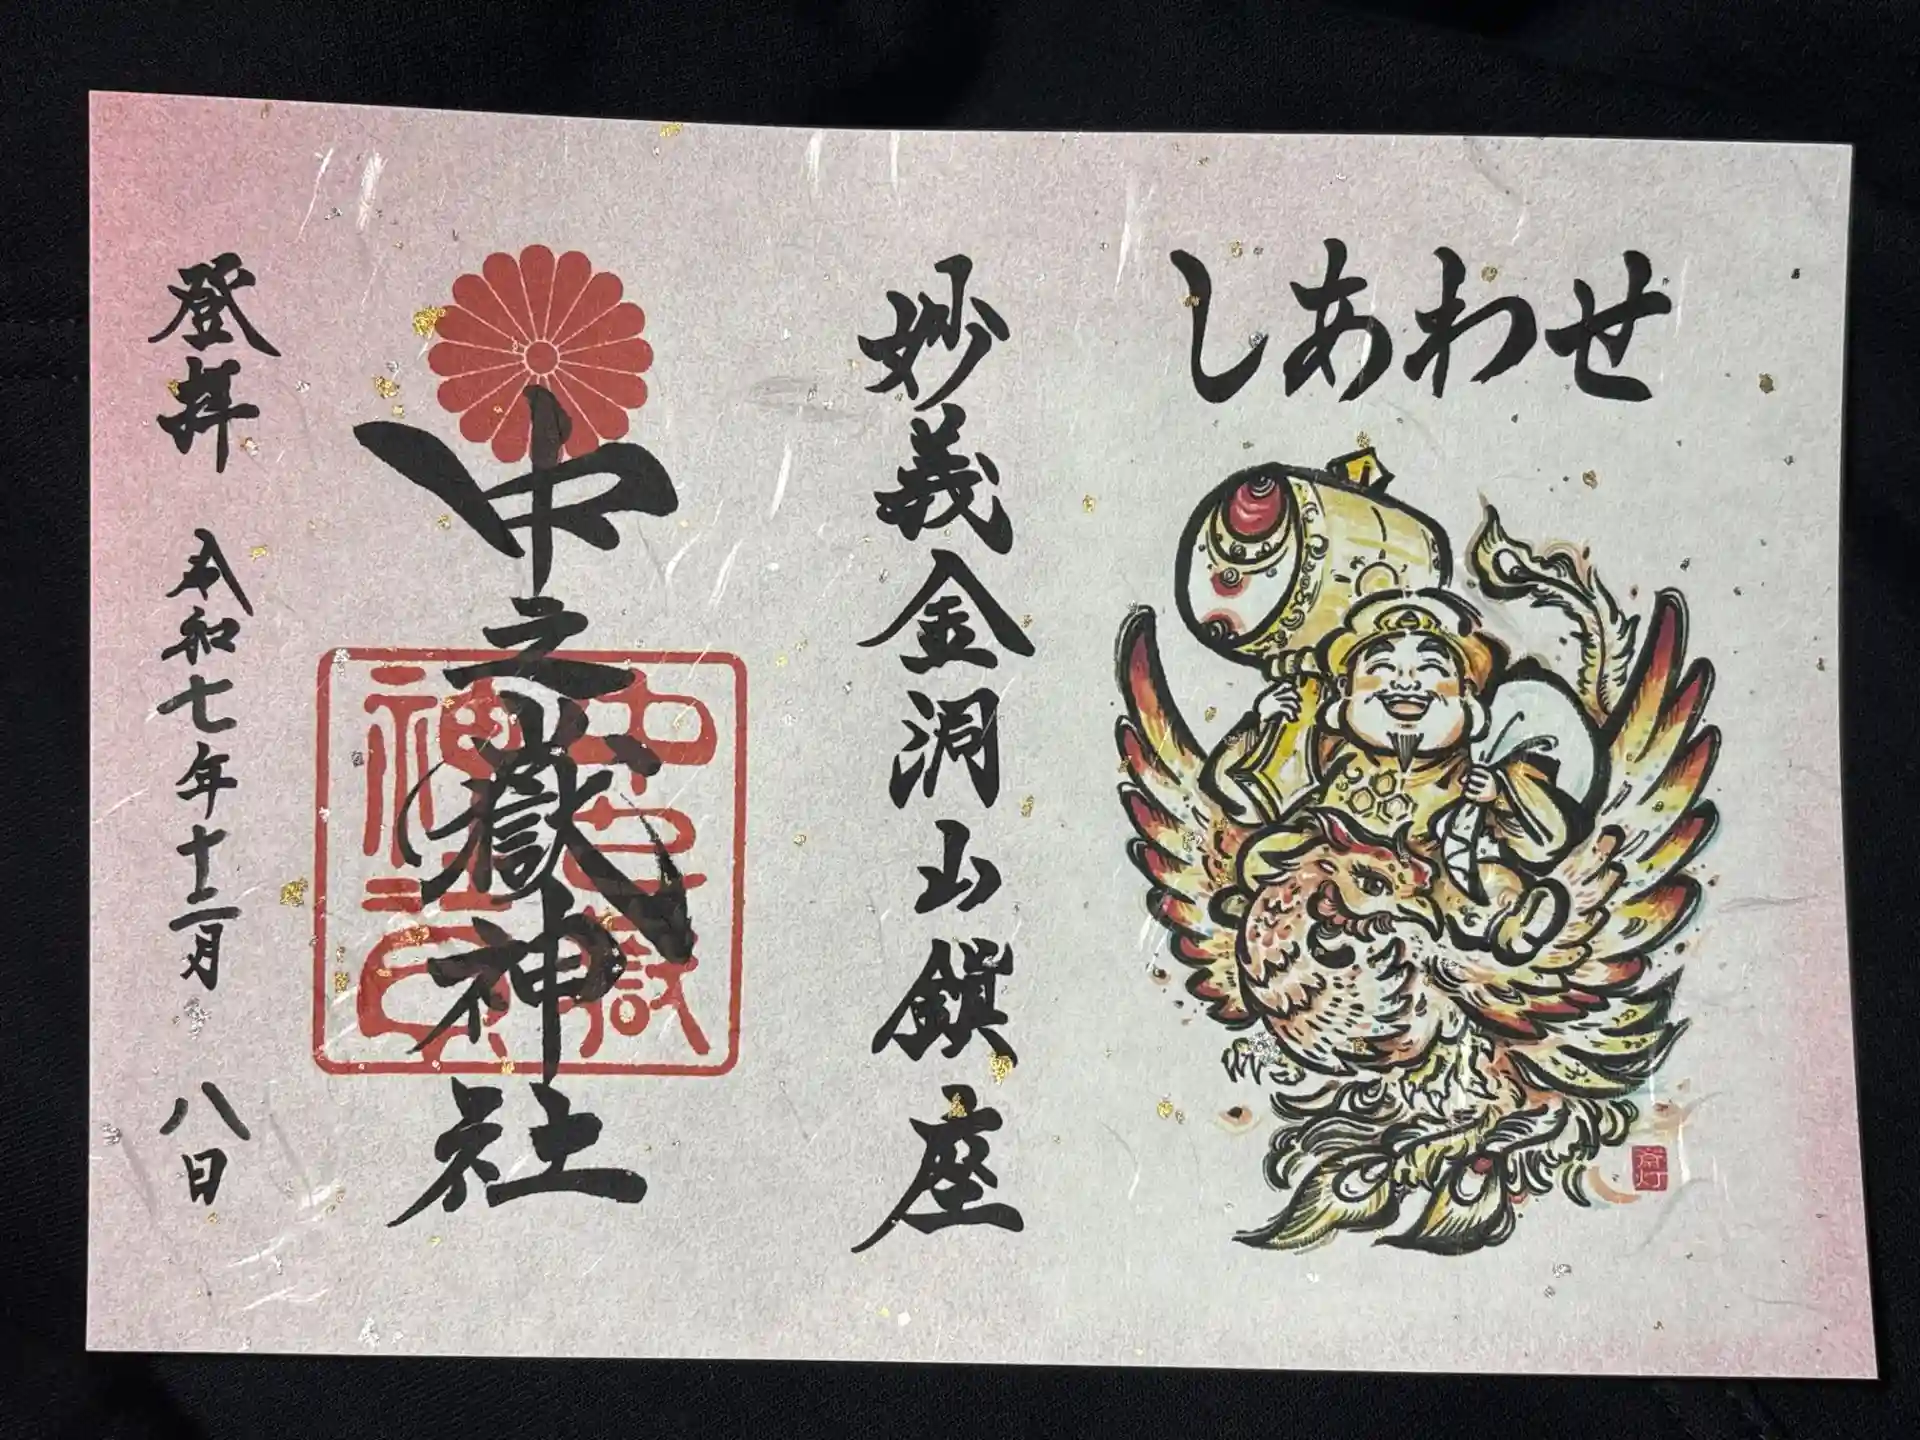 しあわせ
妙義金洞山鎮座
中之嶽神社
中之嶽
神社之印
登拝 令和七年十二月 八日